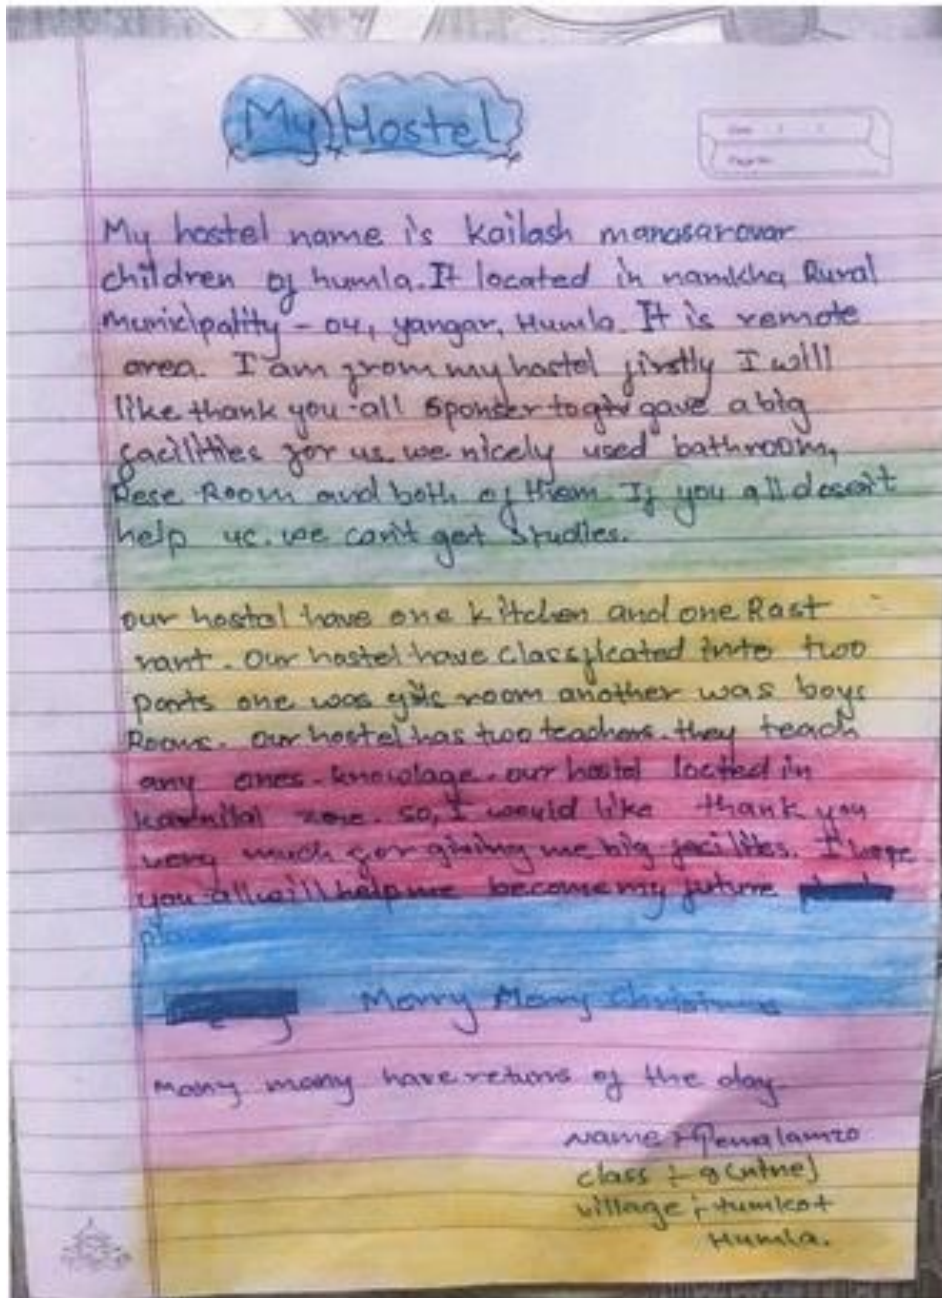 My Hostel
Date
Page No.
My hostel name is kailash manasarovar
children of humla. It located in namkha Rural
Municipality - 04, yangar, Humla. It is remote
area. I am from my hostel firstly I will
like thank you all sponser to gave a big
facilities for us. we nicely used bathroom,
Rese Room and both of them. If you all doesn't
help uc. we can't get studies.
our hostel have one kitchen and one Rast
rant. Our hostel have classficated into two
parts one was room another was boys
Rooms. our hostel has two teachers. they teach
any ones. knowlage. our hostel locted in
zone. so, I would like thank you
very much for giving me big facilites. I hope
you all will help me become my future
Merry Merry Christmas
Many many have returns of the day
Name :- Pemalamzo
class :- 9(nine)
village :- tumkot
Humla.